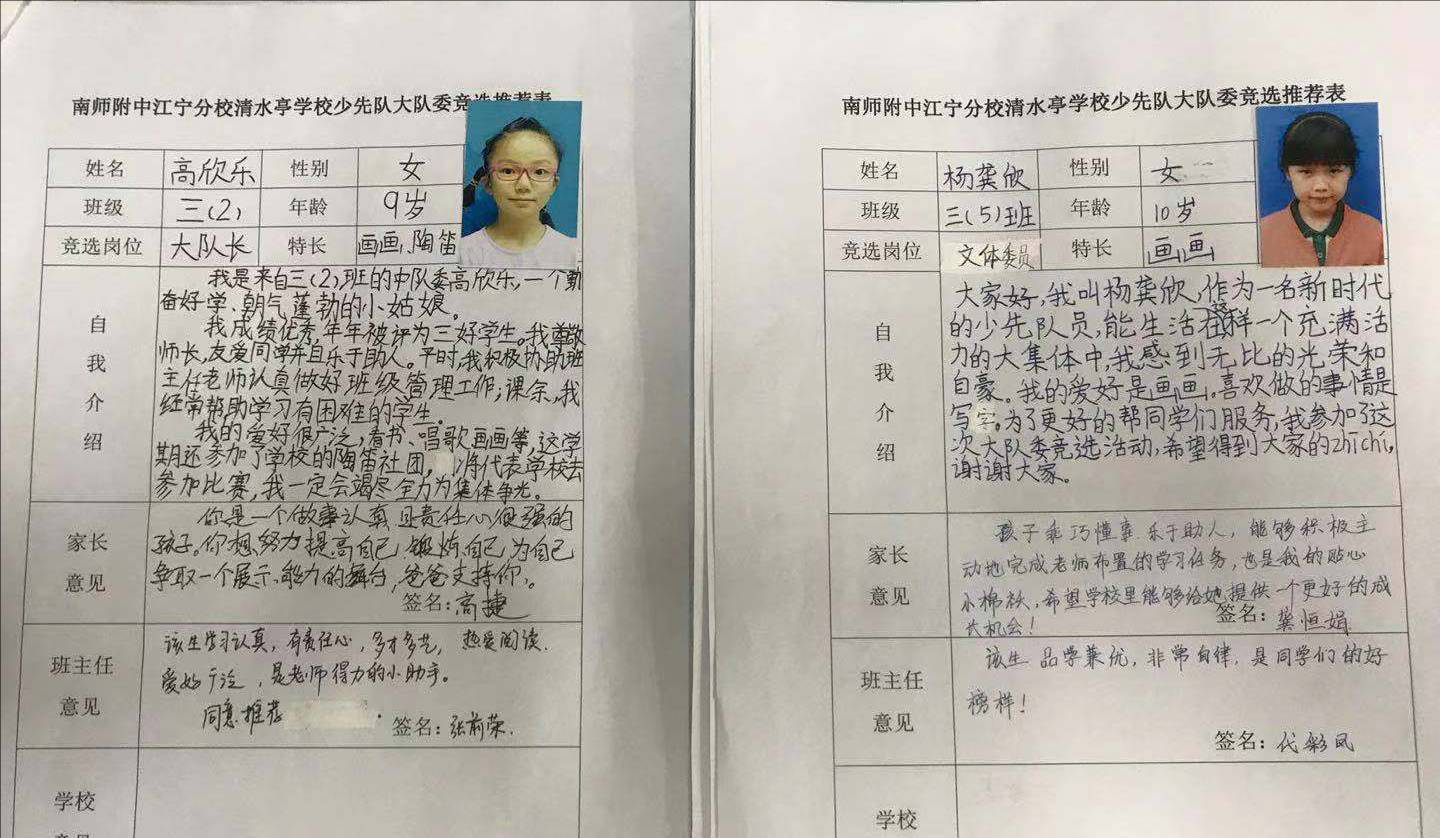 南师附中江宁分校清水亭学校少先队大队委竞选推荐表
姓名 高欣乐 性别 女
班级 三(2) 年龄 9岁
竞选岗位 大队长 特长 画画、陶笛
自我介绍
我是来自三(2)班的中队委高欣乐,一个勤
奋好学、朝气蓬勃的小姑娘。
我成绩优秀,年年被评为三好学生。我尊敬
师长,友爱同学并且乐于助人。平时,我积极协助班
主任老师认真做好班级管理工作;课余,我
经常帮助学习有困难的学生。
我的爱好很广泛,看书、唱歌画画等,这学
期还参加了学校的陶笛社团,将代表学校去
参加比赛,我一定会竭尽全力为集体争光。
家长意见
你是一个做事认真且责任心很强的
孩子。你想努力提高自己 锻炼自己 为自己
争取一个展示能力的舞台,爸爸支持你。
签名:高捷
班主任意见
该生学习认真,有责任心,多才多艺,热爱阅读,
爱好广泛,是老师得力的小助手。
同意推荐
签名:张前荣.
学校
意见
南师附中江宁分校清水亭学校少先队大队委竞选推荐表
姓名 杨龚欣 性别 女
班级 三(5)班 年龄 10岁
竞选岗位 文体委员 特长 画画
自我介绍
大家好,我叫杨龚欣,作为一名新时代
的少先队员,能生活在这样一个充满活
力的大集体中,我感到无比的光荣和
自豪。我的爱好是画画。喜欢做的事情是
写字。为了更好的帮同学们服务,我参加了这
次大队委竞选活动,希望得到大家的zhichi,
谢谢大家。
家长意见
孩子乖巧懂事.乐于助人,能够积极主
动地完成老师布置的学习任务,也是我的贴心
小棉袄,希望学校里能够给她提供一个更好的成
长机会!
签名:龚恒娟
班主任意见
该生品学兼优,非常自律,是同学们的好
榜样!
签名:代彩凤
学校